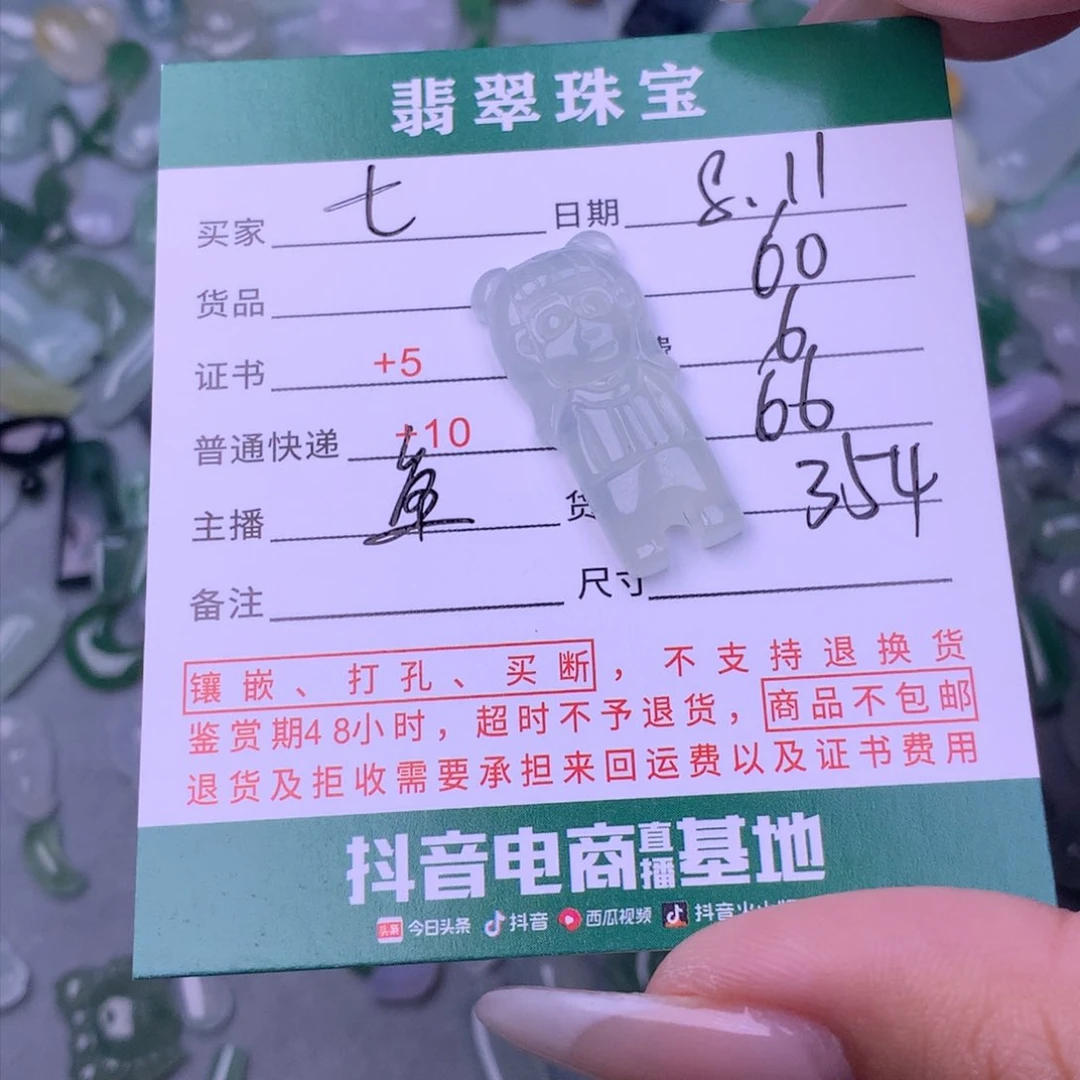 翡翠珠宝
买家 七 日期 8.11
货品 60
证书 +5 费 6
普通快递 +10 66
主播 货 354
备注 尺寸
镶嵌、打孔、买断，不支持退换货
鉴赏期48小时，超时不予退货，商品不包邮
退货及拒收需要承担来回运费以及证书费用
抖音电商直播基地
头条 今日头条 抖音 西瓜视频 抖音火山版